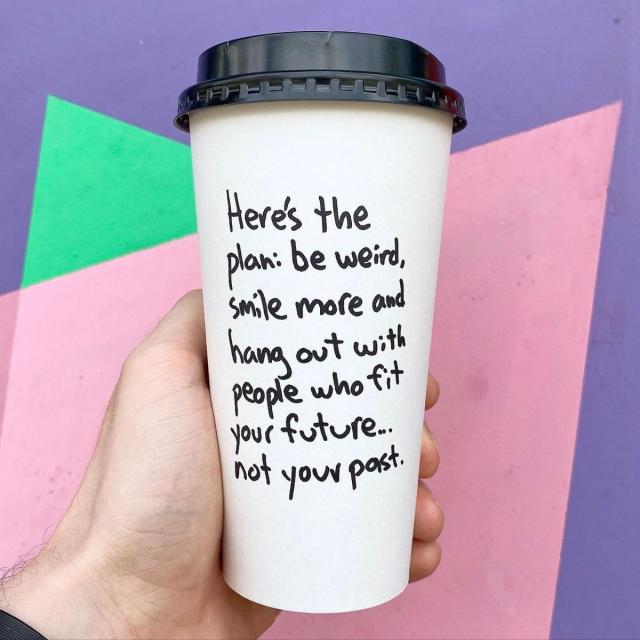 Here's the
plan: be weird,
smile more and
hang out with
people who fit
your future...
not your past.